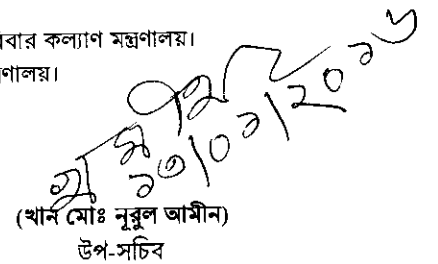 বার কল্যাণ মন্ত্রণালয়।
ণালয়।
১৩/০১/২০১৬
(খান মোঃ নূরুল আমীন)
উপ-সচিব